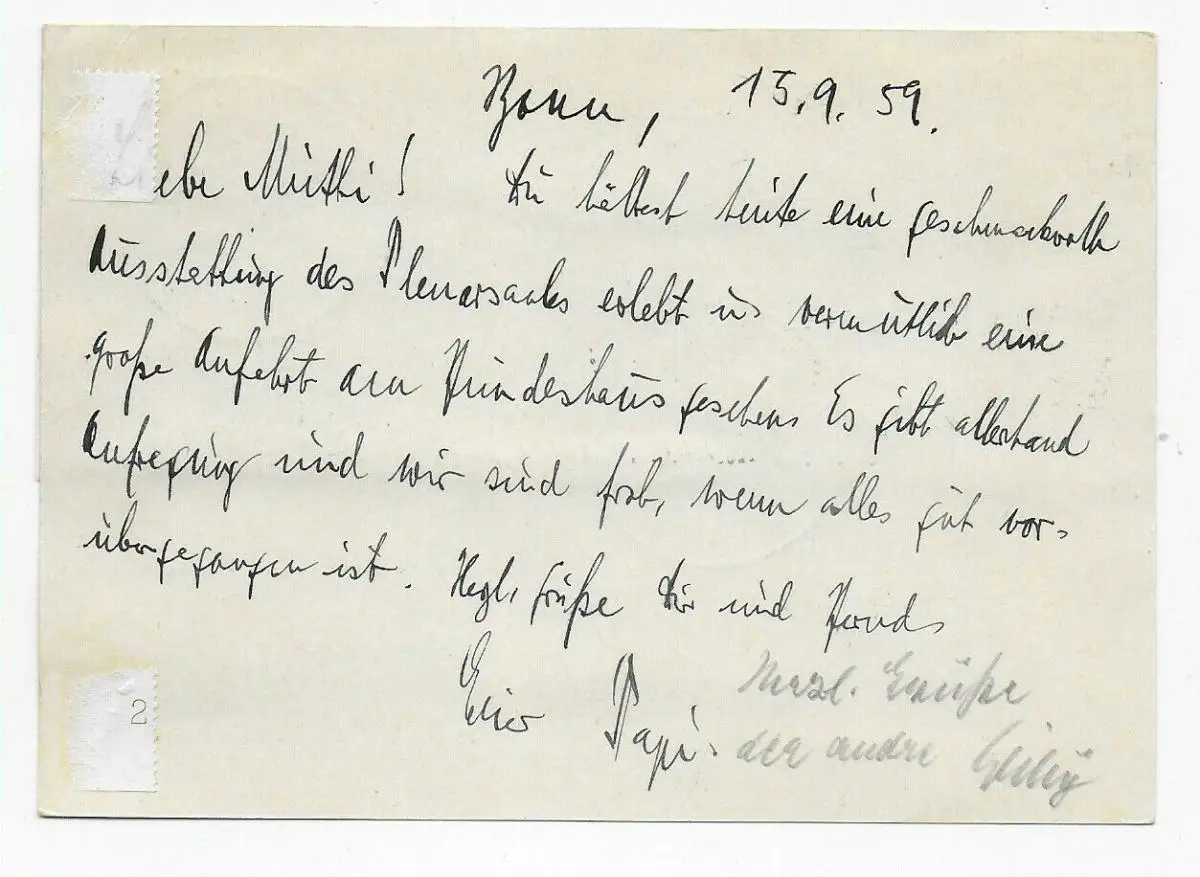 Bonn, 15.9.59.
Liebe Mutti! Du hättest heute eine geschmackvolle
Ausstattung des Plenarsaales erlebt u. vermutlich eine
große Anfahrt am Bundeshaus gesehen. Es gibt allerhand
Aufregung und wir sind froh, wenn alles gut vor-
übergegangen ist. Herzl. Grüße Dir und Bernd
Euer Papi.
Herzl. Grüße
der andre
2